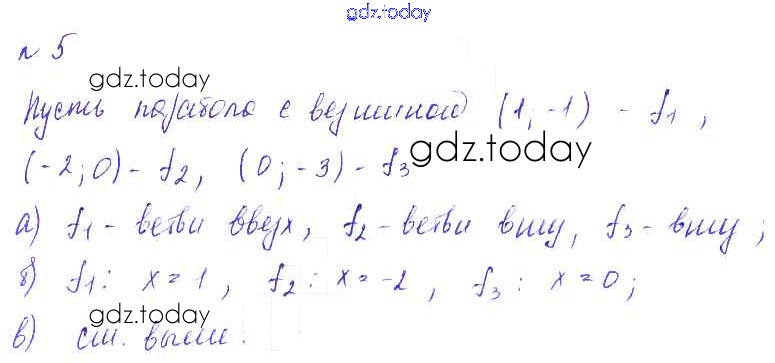 gdz.today
n 5
gdz.today
Пусть парабола с вершиной (1; -1) - f1,
(-2; 0) - f2, (0; -3) - f3
gdz.today
а) f1 - ветви вверх, f2 - ветви вниз, f3 - вниз;
б) f1: x = 1, f2: x = -2, f3: x = 0;
gdz.today
в) см. выше.